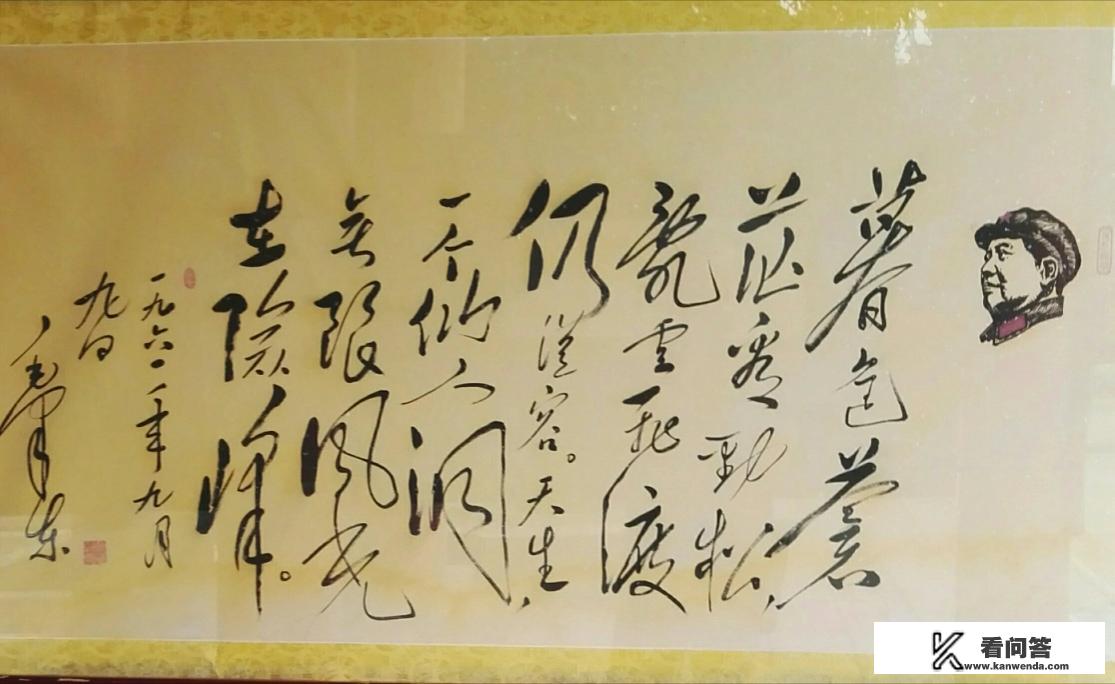 暮色蒼
茫看勁松,
亂云飛渡
仍從容。天生
一个仙人洞,
无限風光
在險峰。
一九六一年九月
九日
毛澤东
看问答
www.kanwenda.com